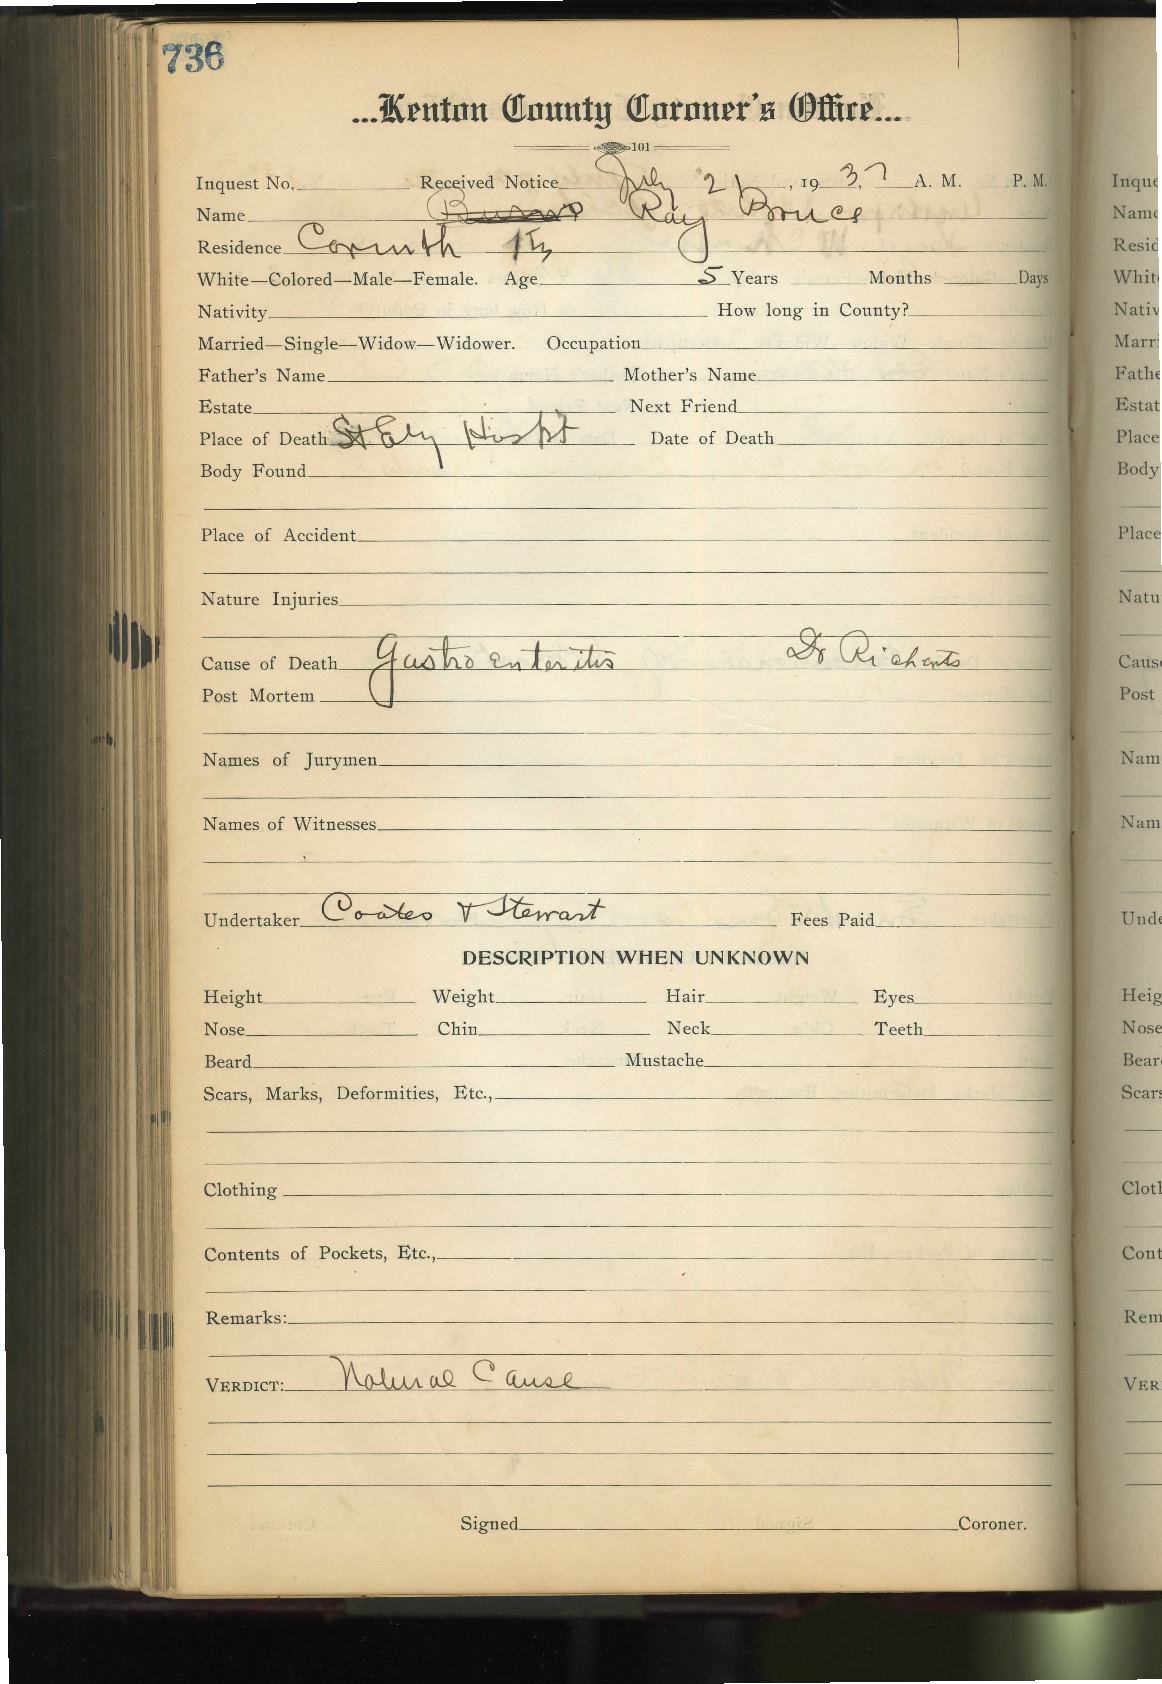 736
...Kenton County Coroner's Office...
101
Inquest No. Received Notice July 21, 1937 A. M. P. M.
Name Ray Bruce
Residence Corinth Ky
White—Colored—Male—Female. Age 5 Years Months Days
Nativity How long in County?
Married—Single—Widow—Widower. Occupation
Father's Name Mother's Name
Estate Next Friend
Place of Death St Ely Hospt Date of Death
Body Found
Place of Accident
Nature Injuries
Cause of Death Gastro enteritis Dr
Post Mortem
Names of Jurymen
Names of Witnesses
Undertaker Coates & Stewart Fees Paid
DESCRIPTION WHEN UNKNOWN
Height Weight Hair Eyes
Nose Chin Neck Teeth
Beard Mustache
Scars, Marks, Deformities, Etc.,
Clothing
Contents of Pockets, Etc.,
Remarks:
VERDICT: Natural Cause
Signed Coroner.